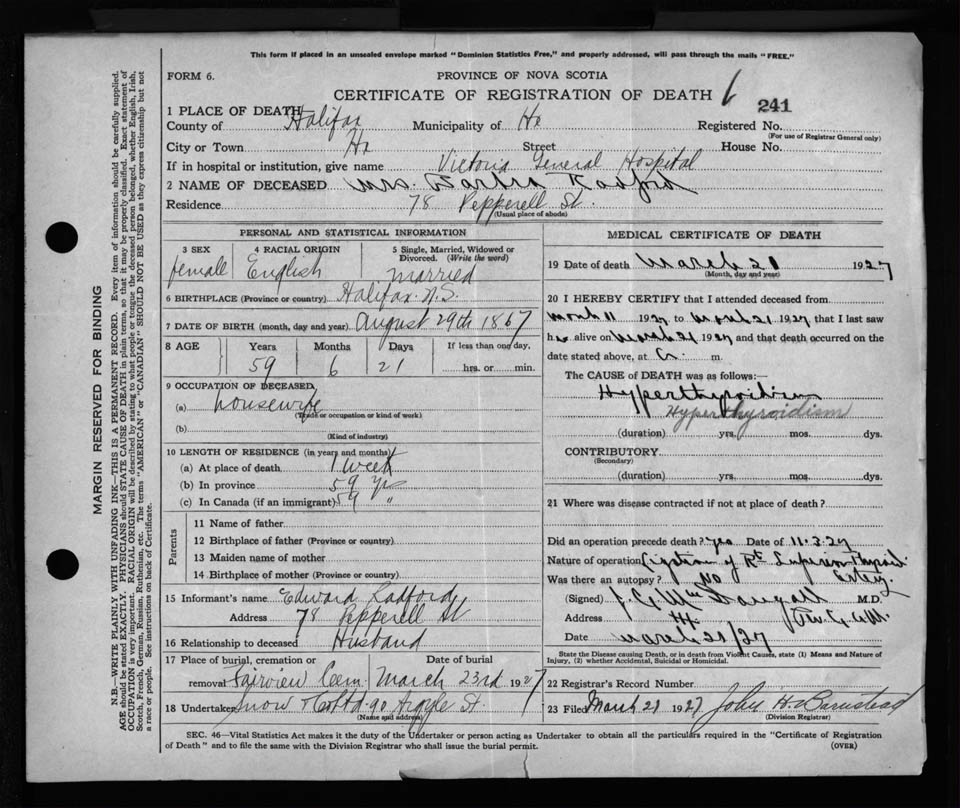 This form if placed in an unsealed envelope marked "Dominion Statistics Free," and properly addressed, will pass through the mails "FREE."
FORM 6.
PROVINCE OF NOVA SCOTIA
CERTIFICATE OF REGISTRATION OF DEATH 6
241
1 PLACE OF DEATH
County of Halifax Municipality of Hx Registered No.
(For use of Registrar General only)
City or Town Hx Street House No.
If in hospital or institution, give name Victoria General Hospital
2 NAME OF DECEASED Mrs. Radford
Residence 78 Pepperell St.
(Usual place of abode)
PERSONAL AND STATISTICAL INFORMATION
3 SEX 4 RACIAL ORIGIN 5 Single, Married, Widowed or Divorced. (Write the word)
female English married
6 BIRTHPLACE (Province or country) Halifax. N.S.
7 DATE OF BIRTH (month, day and year) August 29th 1867
8 AGE Years Months Days If less than one day,
59 6 21 hrs. or min.
9 OCCUPATION OF DECEASED
(a) housewife
(Trade or occupation or kind of work)
(b)
(Kind of industry)
10 LENGTH OF RESIDENCE (in years and months)
(a) At place of death 1 week
(b) In province 59 yrs
(c) In Canada (if an immigrant) 59 "
Parents
11 Name of father
12 Birthplace of father (Province or country)
13 Maiden name of mother
14 Birthplace of mother (Province or country)
15 Informant's name Edward Radford
Address 78 Pepperell St
16 Relationship to deceased Husband
17 Place of burial, cremation or Date of burial
removal Fairview Cem. March 23rd 1927
18 Undertaker Snow & Co Ltd 90 Argyle St.
(Name and address)
MEDICAL CERTIFICATE OF DEATH
19 Date of death March 21 1927
(Month, day and year)
20 I HEREBY CERTIFY that I attended deceased from
March 11 1927 to March 21 1927 that I last saw
her alive on March 21 1927 and that death occurred on the
date stated above, at m.
The CAUSE OF DEATH was as follows:—
Hyperthyroidism
Hyperthyroidism
(duration) yrs. mos. dys.
CONTRIBUTORY
(Secondary)
(duration) yrs. mos. dys.
21 Where was disease contracted if not at place of death?
Did an operation precede death? yes Date of 11.3.27
Nature of operation Ligation of Rt Superior Thyroid
Was there an autopsy? No Artery
(Signed) M.D.
Address Hx
Date March 21/27
State the Disease causing Death, or in death from Violent Causes, state (1) Means and Nature of Injury, (2) whether Accidental, Suicidal or Homicidal.
22 Registrar's Record Number
23 Filed March 21 1927 John H. Barnstead
(Division Registrar)
SEC. 46—Vital Statistics Act makes it the duty of the Undertaker or person acting as Undertaker to obtain all the particulars required in the "Certificate of Registration
of Death" and to file the same with the Division Registrar who shall issue the burial permit.
(OVER)
MARGIN RESERVED FOR BINDING
N.B.—WRITE PLAINLY WITH UNFADING INK—THIS IS A PERMANENT RECORD. Every item of information should be carefully supplied.
AGE should be stated EXACTLY. PHYSICIANS should STATE CAUSE OF DEATH in plain terms, so that it may be properly classified. Exact statement of
OCCUPATION is very important. RACIAL ORIGIN will be described by stating to what people or tongue the deceased person belonged, whether English, Irish,
Scotch, French, German, Russian, Ruthenian, etc. The terms "AMERICAN" or "CANADIAN" SHOULD NOT BE USED as they express citizenship but not
a race or people. See instructions on back of Certificate.